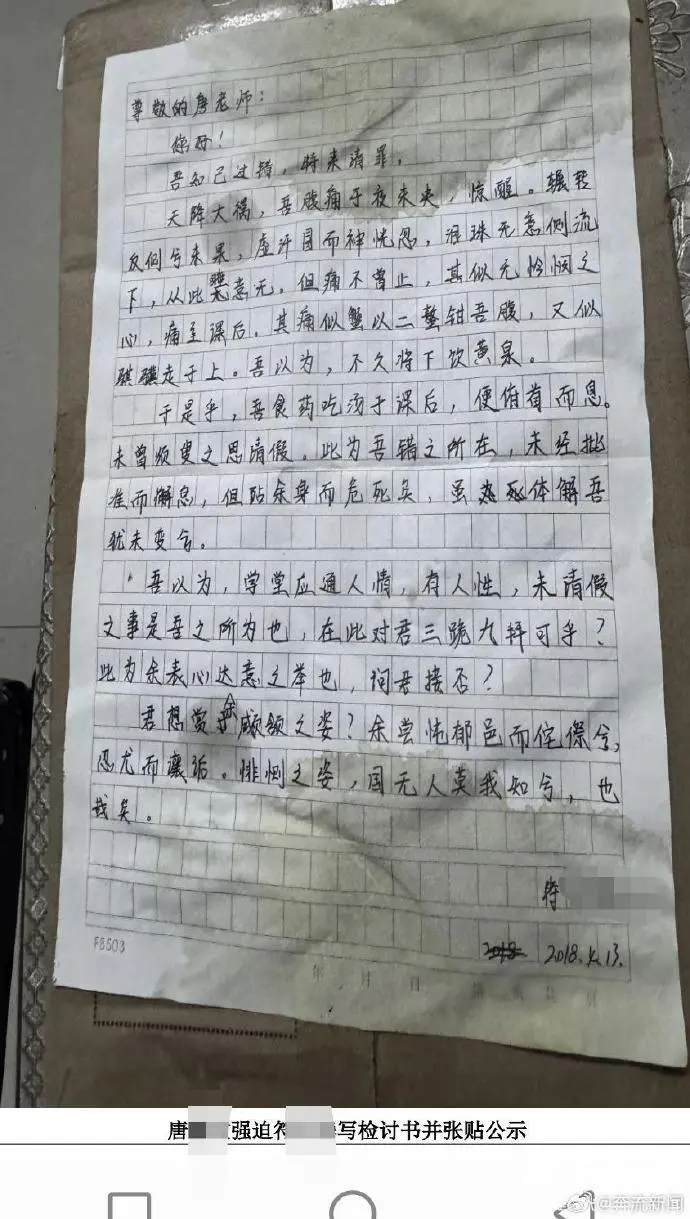 尊敬的唐老师：
你好！
吾知己过错，特来请罪。
天降大祸，吾腹痛于夜未央，惊醒。辗转
反侧兮未果，虚汗冒而神恍忽，泪珠无意侧流
下，从此意无。但痛不曾止，其似无怜悯之
心，痛至课后。其痛似蟹以二螯钳吾腹，又似
骐骥走于上。吾以为，不久将下饮黄泉。
于是乎，吾食药吃汤于课后，便俯首而息。
未曾烦叟之思请假。此为吾错之所在，未经批
准而懈息，但阽余身而危死矣，虽死体解吾
犹未变兮。
吾以为，学堂应通人情，有人性，未请假
之事是吾之所为也，在此对君三跪九拜可乎？
此为余表心达意之举也，问君接否？
君想赏余顑颔之姿？余尝忳郁邑而侘傺兮，
忍尤而攘诟。悱恻之姿，国无人莫我知兮，也
哉矣。
符
2018 2018.5.13.
F8503
年 月 日 第 页共 页
唐 强迫符 写检讨书并张贴公示
@奔流新闻